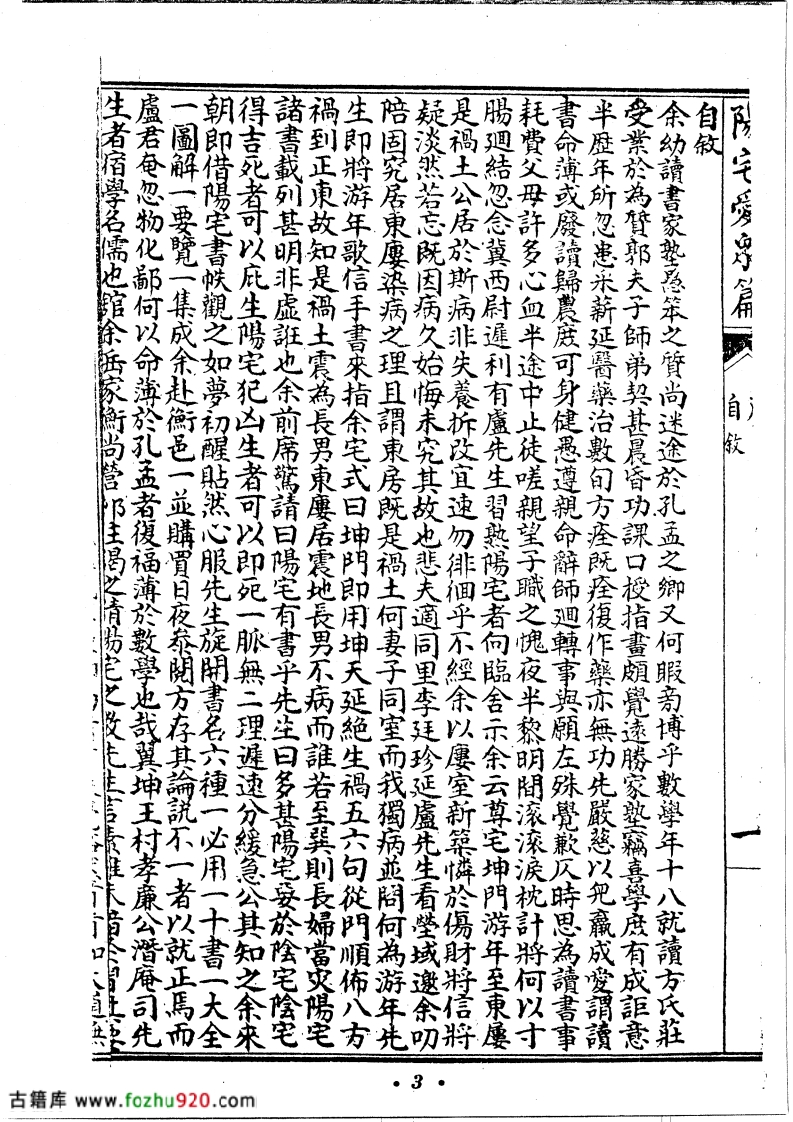 陽宅愛眾篇
自敘
一
自敘
余幼讀書家塾愚笨之質尚迷途於孔孟之鄉又何暇旁博乎數學年十八就讀方氏莊
受業於為賢郭夫子師弟契甚晨昏功課口授指畫頗覺遠勝家塾竊喜學庶有成詎意
半歷年所忽患采薪延醫藥治數旬方痊既痊復作藥亦無功先嚴慈以兜羸成愛謂讀
書命薄或廢讀歸農庶可身健愚遵親命辭師迴轉事與願左殊覺歉仄時思為讀書事
耗費父母許多心血半途中止徒嗟親望子職之愧夜半黎明間滾滾淚枕計將何以寸
腸迴結忽念冀西尉遲利有盧先生習熟陽宅者向臨舍示余云尊宅坤門游年至東屢
是禍土公居於斯病非失養拆改宜速勿徘徊乎不經余以屢室新築憐於傷財將信將
疑淡然若忘既因病久始悔未究其故也悲夫適同里李廷珍延盧先生看塋域邀余叨
陪因究居東屢染病之理且謂東房既是禍土何妻子同室而我獨病並問何為游年先
生即將游年歌信手書來指余宅式曰坤門即用坤天延絕生禍五六句從門順佈八方
禍到正東故知是禍土震為長男東屢居震地長男不病而誰若至巽則長婦當灾陽宅
諸書載列甚明非虛誑也余前席驚請曰陽宅有書乎先生曰多甚陽宅妥於陰宅陰宅
得吉死者可以庇生陽宅犯凶生者可以即死一脈無二理遲速分緩急公其知之余來
朝即借陽宅書帙觀之如夢初醒貼然心服先生旋開書名六種一必用一十書一大全
一圖解一要覽一集成余赴衡邑一並購買日夜叅閱方存其論說不一者以就正焉而
盧君奄忽物化鄙何以命薄於孔孟者復福薄於數學也哉冀坤王村孝廉公潛庵司先
生者宿學名儒也館余岳家衡尚營
3
古籍库 www.fozhu920.com